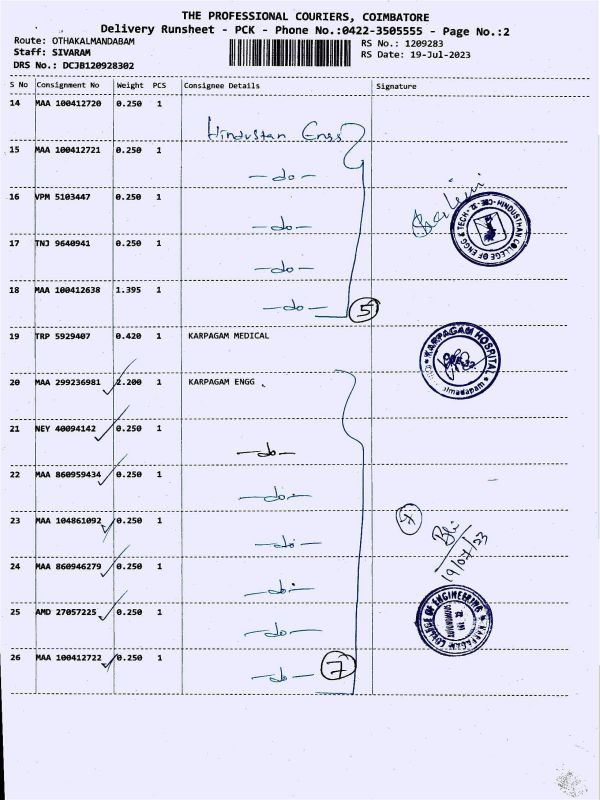 THE PROFESSIONAL COURIERS, COIMBATORE
Delivery Runsheet - PCK - Phone No.:0422-3505555 - Page No.:2
Route: OTHAKALMANDABAM
RS No.: 1209283
Staff: SIVARAM
RS Date: 19-Jul-2023
DRS No.: DCJB120928302
S No Consignment No Weight PCS Consignee Details Signature
14 MAA 100412720 0.250 1
Hindustan Engg
15 MAA 100412721 0.250 1
-do-
16 VPM 5103447 0.250 1
-do-
17 TNJ 9640941 0.250 1
-do-
HINDUSTHAN COLLEGE OF ENGG & TECH
18 MAA 100412638 1.395 1
-do- 5
19 TRP 5929407 0.420 1 KARPAGAM MEDICAL
KARPAGAM HOSPITAL
20 MAA 299236981 2.200 1 KARPAGAM ENGG
21 NEY 40094142 0.250 1
-do-
22 MAA 860959434 0.250 1
-do-
23 MAA 104861092 0.250 1
-do- 7
19/07/23
24 MAA 860946279 0.250 1
-do-
25 AMD 27057225 0.250 1
-do-
KARPAGAM COLLEGE OF ENGINEERING
26 MAA 100412722 0.250 1
-do- 7